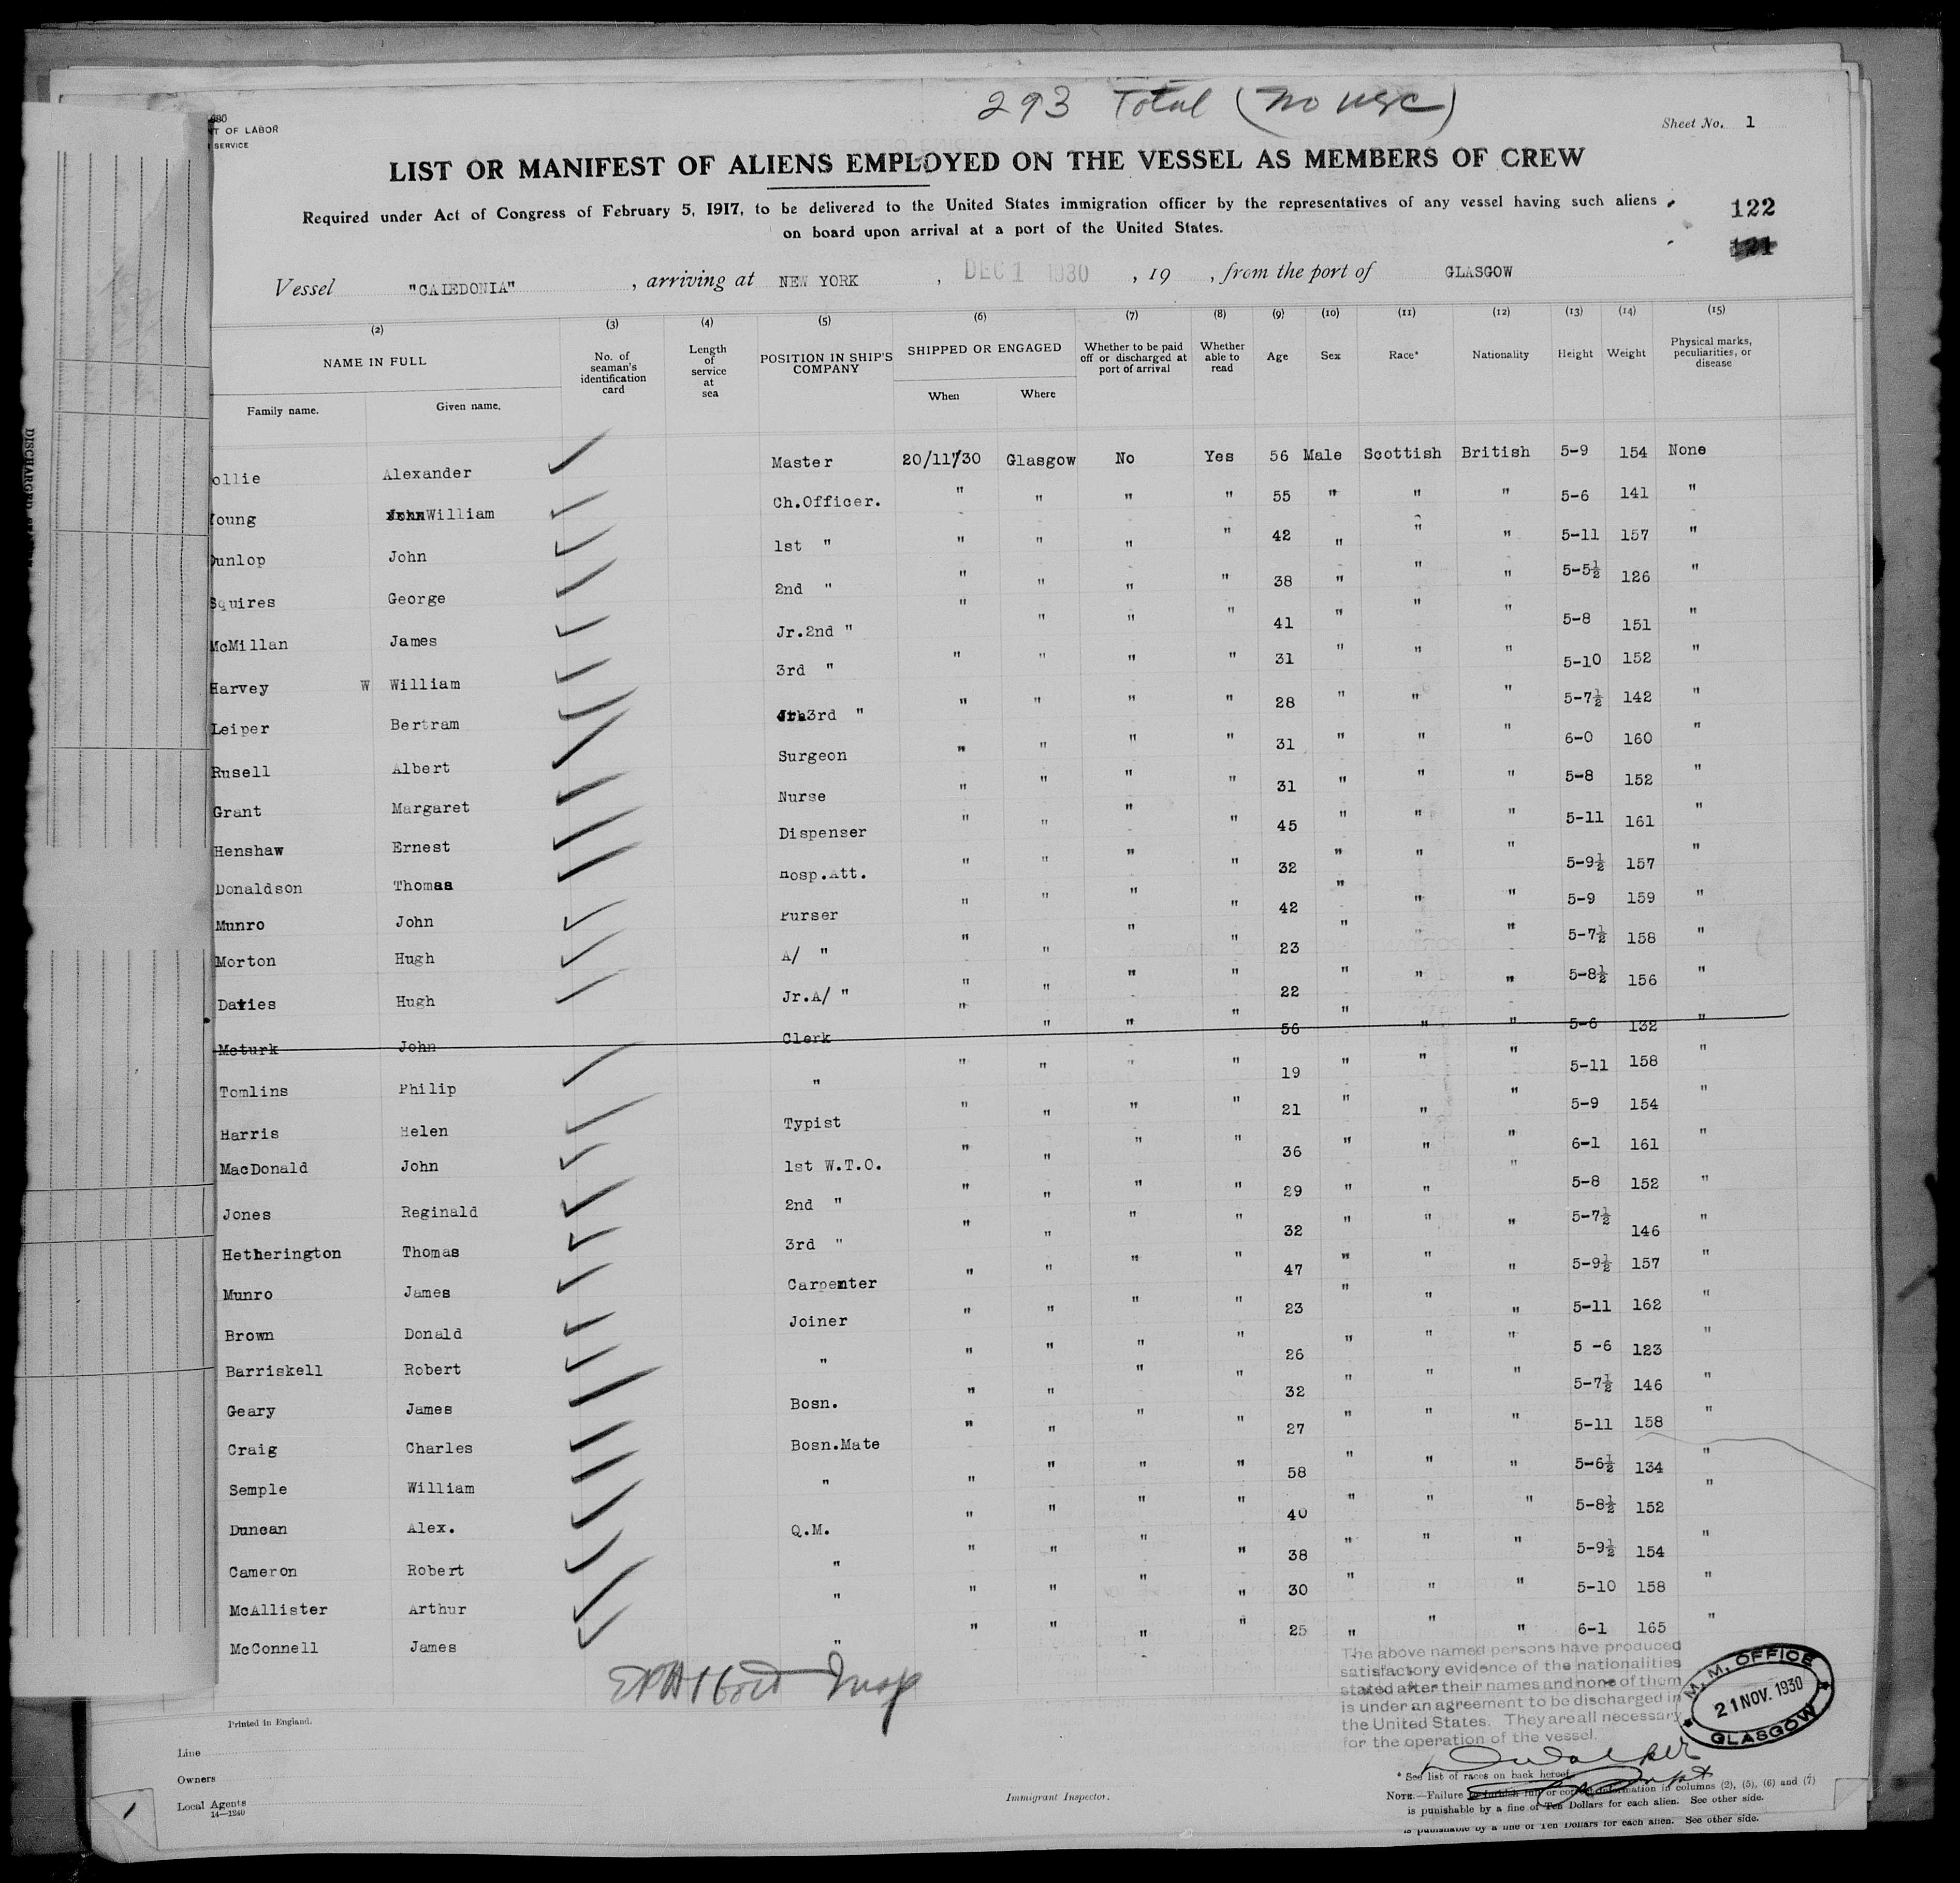 293 Total (no usc)
Sheet No. 1
NT OF LABOR
SERVICE
LIST OR MANIFEST OF ALIENS EMPLOYED ON THE VESSEL AS MEMBERS OF CREW
Required under Act of Congress of February 5, 1917, to be delivered to the United States immigration officer by the representatives of any vessel having such aliens
on board upon arrival at a port of the United States.
122
121
Vessel "CALEDONIA", arriving at NEW YORK, DEC 1 1930, 19 , from the port of GLASGOW
(2) (3) (4) (5) (6) (7) (8) (9) (10) (11) (12) (13) (14) (15)
NAME IN FULL No. of seaman's identification card Length of service at sea POSITION IN SHIP'S COMPANY SHIPPED OR ENGAGED Whether to be paid off or discharged at port of arrival Whether able to read Age Sex Race* Nationality Height Weight Physical marks, peculiarities, or disease
Family name. Given name. When Where
ollie Alexander Master 20/11/30 Glasgow No Yes 56 Male Scottish British 5-9 154 None
Young John William Ch.Officer. " " " " 55 " " " 5-6 141 "
Dunlop John 1st " " " " " 42 " " " 5-11 157 "
Squires George 2nd " " " " " 38 " " " 5-5½ 126 "
McMillan James Jr.2nd " " " " " 41 " " " 5-8 151 "
Harvey W William 3rd " " " " " 31 " " " 5-10 152 "
Leiper Bertram 3rd " " " " " 28 " " " 5-7½ 142 "
Rusell Albert Surgeon " " " " 31 " " " 6-0 160 "
Grant Margaret Nurse " " " " 31 " " " 5-8 152 "
Henshaw Ernest Dispenser " " " " 45 " " " 5-11 161 "
Donaldson Thomas Hosp.Att. " " " " 32 " " " 5-9½ 157 "
Munro John Purser " " " " 42 " " " 5-9 159 "
Morton Hugh A/ " " " " " 23 " " " 5-7½ 158 "
Davies Hugh Jr.A/ " " " " " 22 " " " 5-8½ 156 "
Mcturk John Clerk " " " " 56 " " " 5-6 132 "
Tomlins Philip " " " " " 19 " " " 5-11 158 "
Harris Helen Typist " " " " 21 " " " 5-9 154 "
MacDonald John 1st W.T.O. " " " " 36 " " " 6-1 161 "
Jones Reginald 2nd " " " " " 29 " " " 5-8 152 "
Hetherington Thomas 3rd " " " " " 32 " " " 5-7½ 146 "
Munro James Carpenter " " " " 47 " " " 5-9½ 157 "
Brown Donald Joiner " " " " 23 " " " 5-11 162 "
Barriskell Robert " " " " " 26 " " " 5 -6 123 "
Geary James Bosn. " " " " 32 " " " 5-7½ 146 "
Craig Charles Bosn.Mate " " " " 27 " " " 5-11 158 "
Semple William " " " " " 58 " " " 5-6½ 134 "
Duncan Alex. Q.M. " " " " 40 " " " 5-8½ 152 "
Cameron Robert " " " " " 38 " " " 5-9½ 154 "
McAllister Arthur " " " " " 30 " " " 5-10 158 "
McConnell James " " " " " 25 " " " 6-1 165 "
The above named persons have produced
satisfactory evidence of the nationalities
stated after their names and none of them
is under an agreement to be discharged in
the United States. They are all necessary
for the operation of the vessel.
M. M. OFFICE
21 NOV. 1930
GLASGOW
Insp
Printed in England.
Line
Owners
Local Agents
14—1240
Immigrant Inspector.
* See list of races on back hereof.
NOTE.—Failure to furnish full or correct information in columns (2), (5), (6) and (7)
is punishable by a fine of Ten Dollars for each alien. See other side.
is punishable by a fine of Ten Dollars for each alien. See other side.